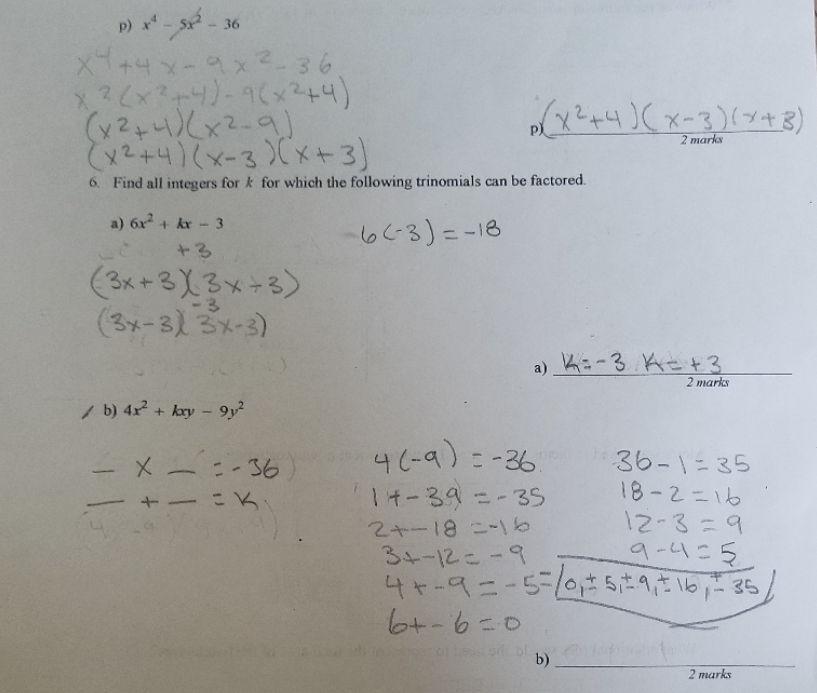 p) x⁴ - 5x² - 36
x⁴ + 4x - 9x² - 36
x²(x²+4) - 9(x²+4)
(x²+4)(x²-9)
(x²+4)(x-3)(x+3)
p) (x²+4)(x-3)(x+3)
2 marks
6. Find all integers for k for which the following trinomials can be factored.
a) 6x² + kx - 3
6(-3) = -18
+3
(3x+3)(3x-3)
-3
(3x-3)(3x-3)
a) K=-3 K=+3
2 marks
b) 4x² + kxy - 9y²
_ x _ = -36
_ + _ = K
4(-9) = -36
1+-39 = -35
2+-18 = -16
3+-12 = -9
4+-9 = -5 = 0, ±5, ±9, ±16, ±35
6+-6 = 0
36-1=35
18-2=16
12-3=9
9-4=5
b)
2 marks